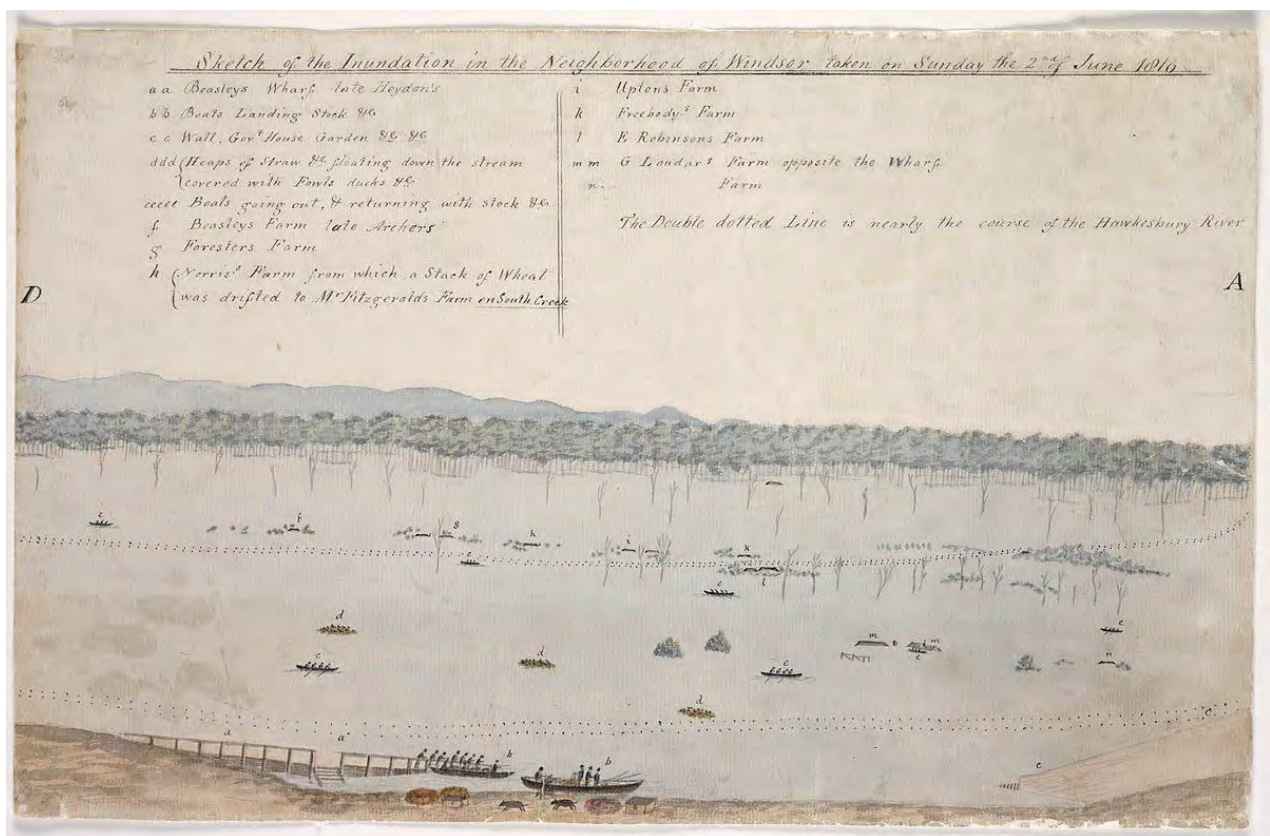 Sketch of the Inundation in the Neighborhood of Windsor taken on Sunday the 2nd of June 1816
a a Beasleys Wharf late Heydon's
b b Boats Landing Stock &c
c c Wall, Govt House Garden &c &c
ddd Heaps of Straw &c floating down the stream
covered with Fowls ducks &c
eeeee Boats going out, & returning with stock &c
f Beasleys Farm late Archers
g Foresters Farm
h Norris's Farm from which a Stack of Wheat
was drifted to Mr Fitzgeralds Farm on South Creek
i Uptons Farm
k Freebodys Farm
l E Robinsons Farm
m m G Loudars Farm opposite the Wharf
n. Farm
The Double dotted Line is nearly the course of the Hawkesbury River
D
A
e
f
g
h
i
k
e
l
e
d
m
m
e
e
d
e
n
d
c
a
a
b
b
c